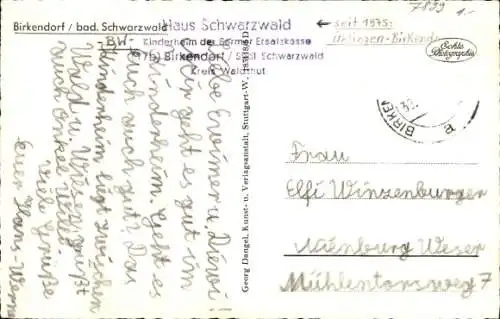 Birkendorf / bad. Schwarzwald
BW-
Haus Schwarzwald
Kinderheim der Barmer Ersatzkasse
Birkendorf / Südl. Schwarzwald
Kreis Waldshut
← seit 1975:
Ühlingen-Birkendorf
7899
1.-
Echte
Photographie
BIRKEN
Georg Dangel, Kunst- u. Verlagsanstalt, Stuttgart-W.
Liebe u.
Mir geht es gut im
Kinderheim. Geht es
Euch auch gut? Das
Kinderheim liegt zwischen
Wald u. Wiesen. grüßt
auch Onkel
viele Grüße
Euer Hans-
Frau
Elfi Winzenburger
Nienburg Weser
Mühlentorsweg 7